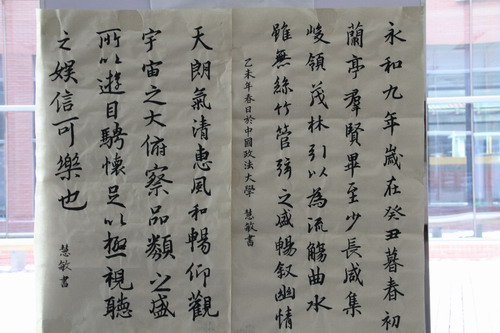 永和九年歲在癸丑暮春初
蘭亭羣賢畢至少長咸集
峻領茂林引以為流觴曲水
雖無絲竹管弦之盛暢叙幽情
乙未年春日於中國政法大學 慧敏書
天朗氣清惠風和暢仰觀
宇宙之大俯察品類之盛
所以遊目騁懷足以極視聽
之娛信可樂也
慧敏書